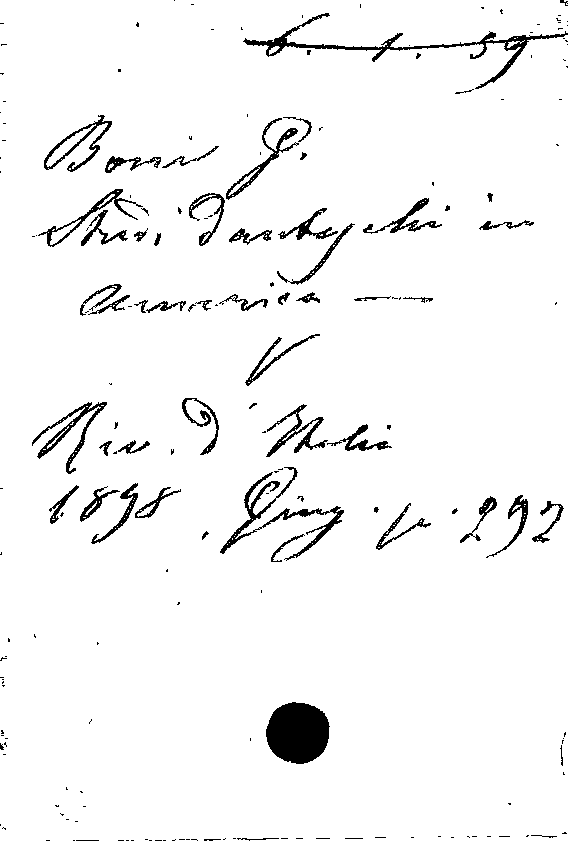 6. 1. 59
Boni G.
Studi Danteschi in
America —
V
Riv. d'Italia
1898, Giug. p. 292